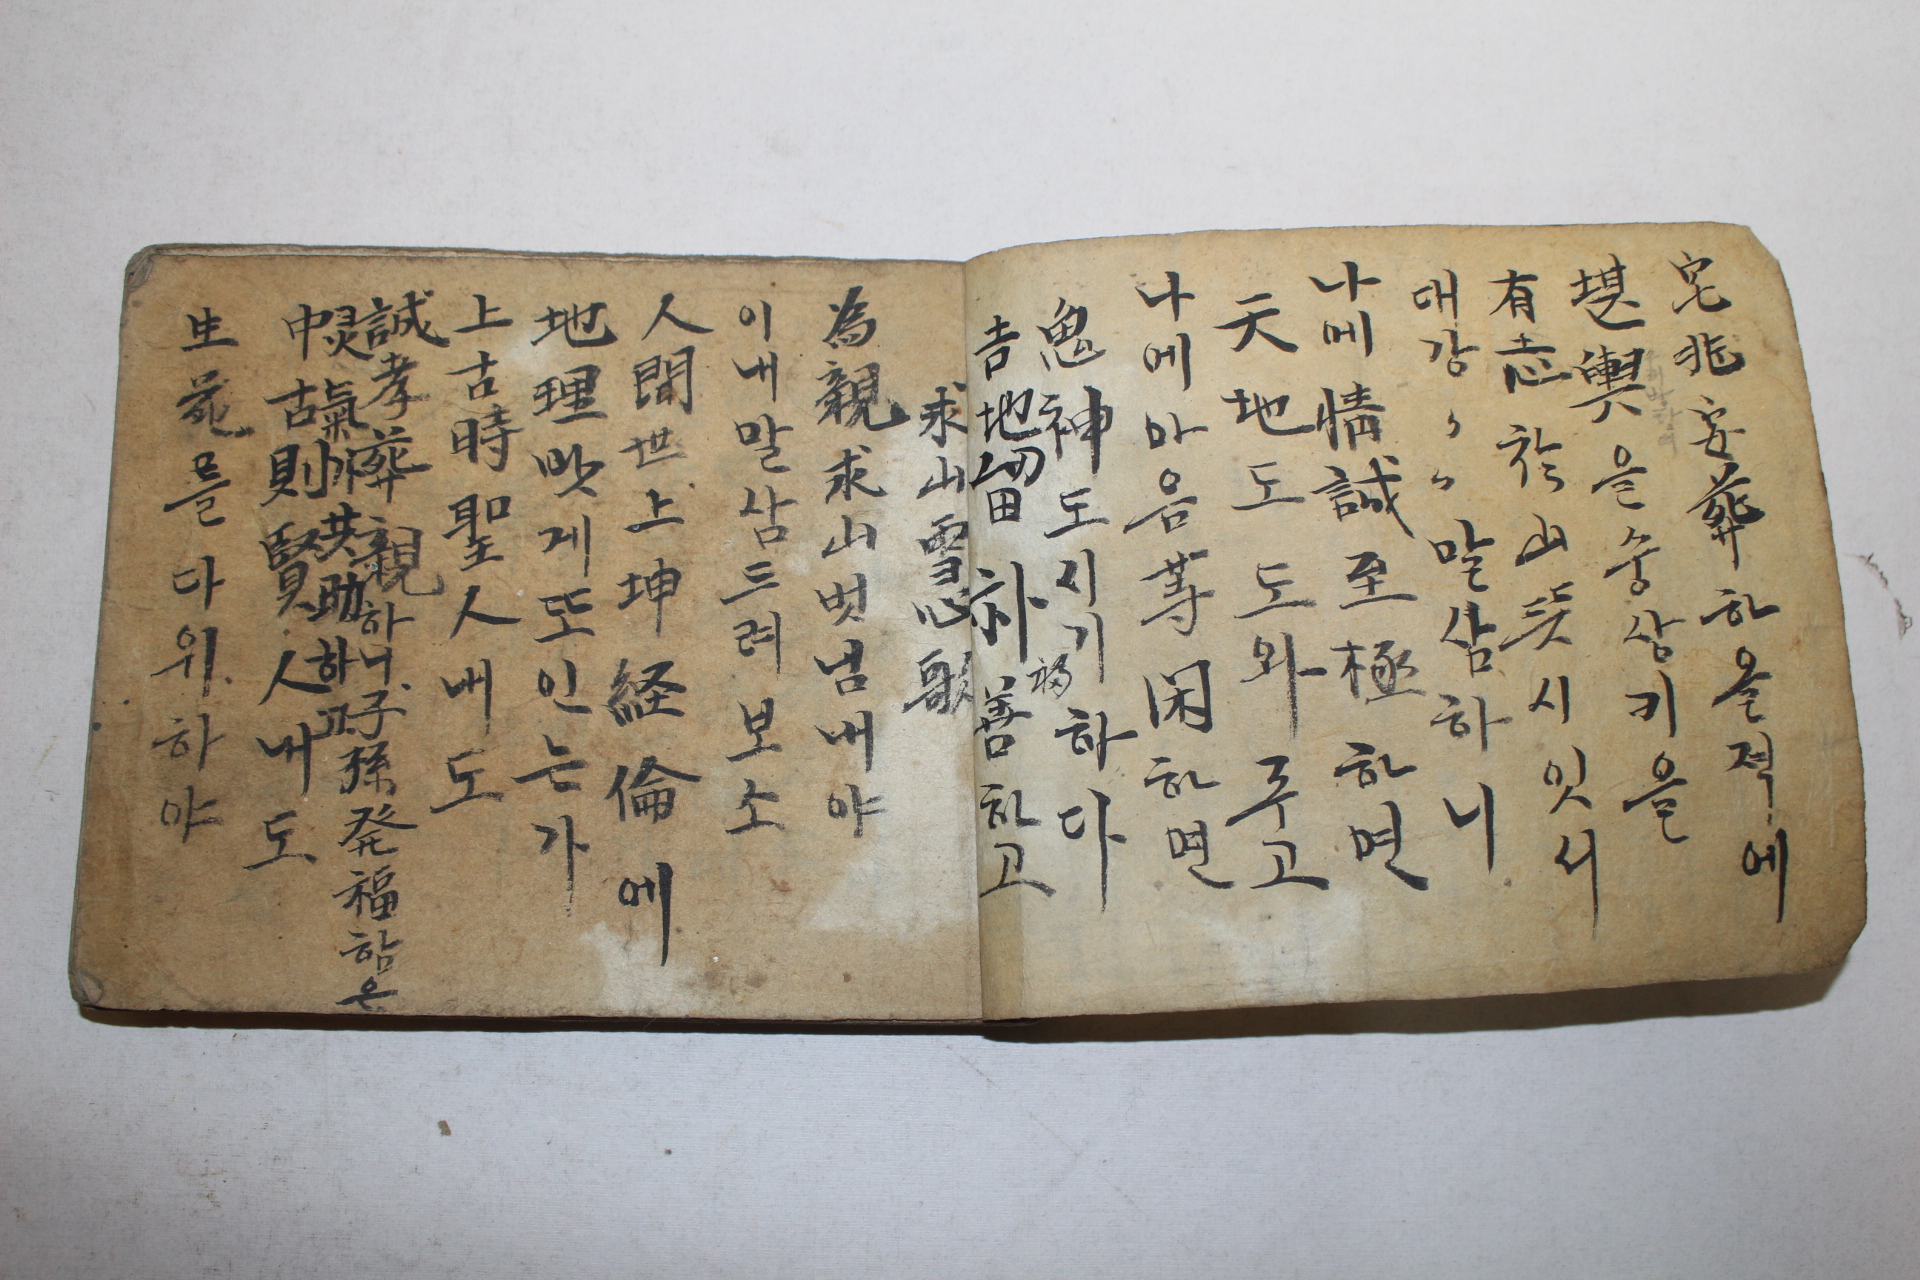 宅兆安葬하올적에
堪輿을숭상키을
有志於山뜻시잇서
대강〻〻말삼하니
나에情誠至極하면
天地도도와주고
나에마음善困하면
鬼神도시기하다
吉地留하善하고
求山
為親求山벗님내야
이내말삼드려보소
人間世上坤経倫에
地理밧게또인는가
上古時聖人내도
誠孝葬親하니子孫発福함은
灵氣所共助하고
中古則賢人내도
生菀를다위하야